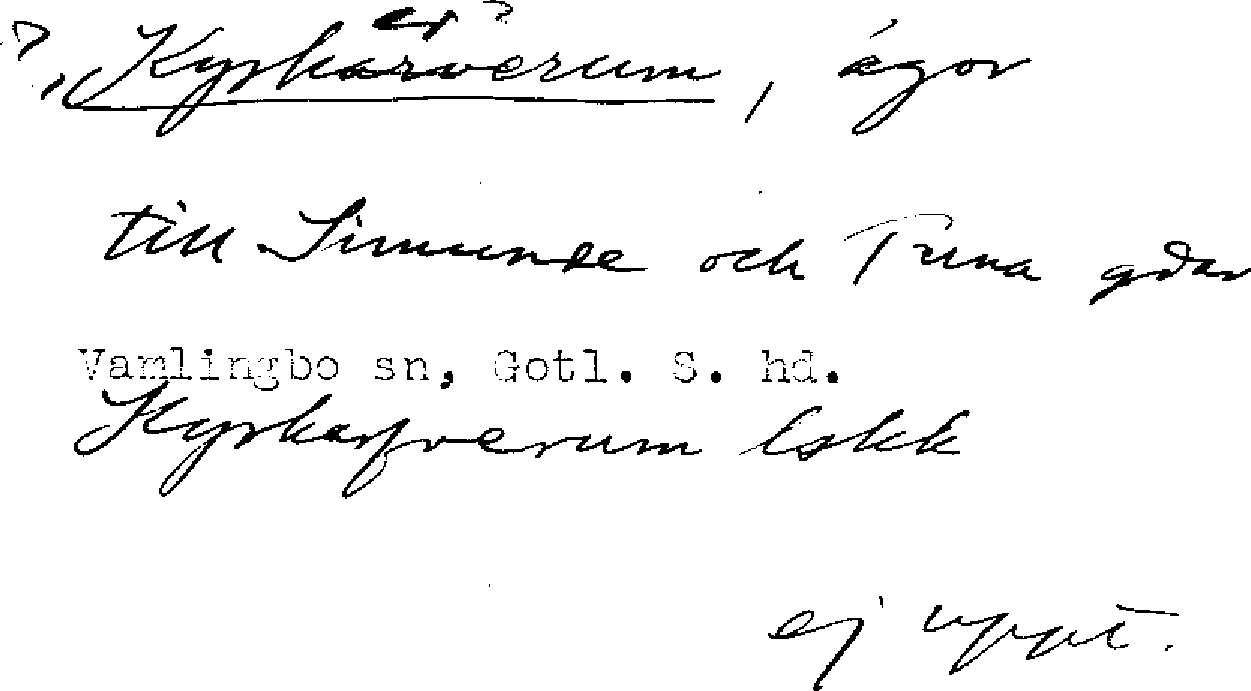 Kyrkarverum, ägor
till Simunde och Tuna gdar
Vamlingbo sn, Gotl. S. hd.
Kyrkarfverum lskk
ej uppt.